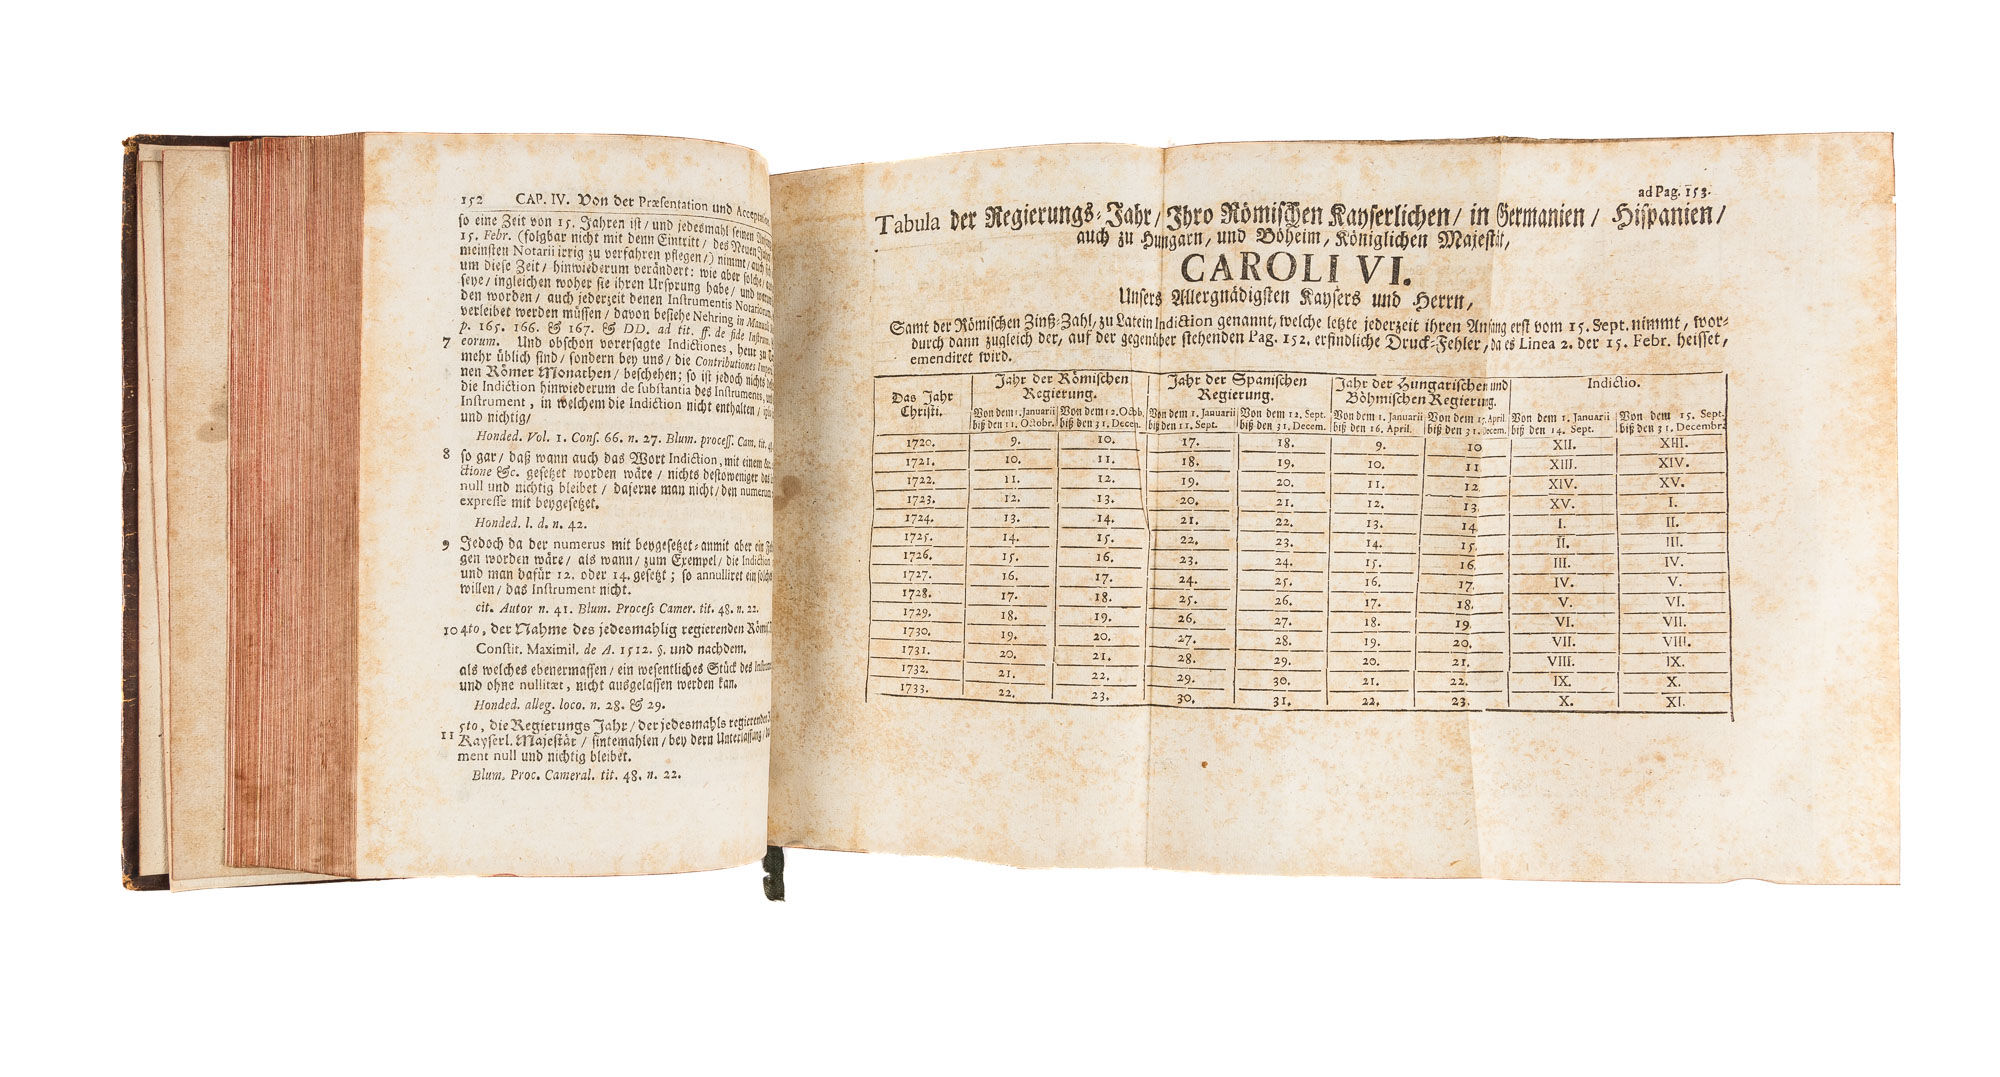 152 CAP. IV. Von der Præsentation und Acceptation
so eine Zeit von 15. Jahren ist / und jedesmahl seinen Anfang
15. Febr. (folgbar nicht mit denn Eintritt / des Neuen Jahrs
meinsten Notarii irrig zu verfahren pflegen /) nimmt / auch
um diese Zeit / hinwiederum verändert: wie aber solche /
seye / ingleichen woher sie ihren Ursprung habe / und warum
den worden / auch jederzeit denen Instrumentis Notariorum,
verleibet werden müssen / davon besiehe Nehring in Manual
p. 165. 166. & 167. & DD. ad tit. ff. de fide Instrum.
7 eorum. Und obschon vorersagte Indictiones, heut zu
mehr üblich sind / sondern bey uns / die Contributiones Imperii
nen Römer Monathen / beschehen; so ist jedoch nichts
die Indiction hinwiederum de substantia des Instrumentes, und
Instrument, in welchem die Indiction nicht enthalten / ipso
und nichtig /
Honded. Vol. 1. Cons. 66. n. 27. Blum. process. Cam. tit.
8 so gar / daß wann auch das Wort Indiction, mit einem &c.
ctione &c. gesetzet worden wäre / nichts destoweniger das
null und nichtig bleibet / daferne man nicht / den numerum
expresse mit beygesetzet.
Honded. l. d. n. 42.
9 Jedoch da der numerus mit beygesetzet-anmit aber ein
gen worden wäre / als wann / zum Exempel / die Indiction
und man dafür 12. oder 14. gesetzt; so annulliret ein solches
willen / das Instrument nicht.
cit. Autor n. 41. Blum. Process Camer. tit. 48. n. 22.
10 4to, der Nahme des jedesmahlig regierenden
Constit. Maximil. de A. 1512. §. und nachdem.
als welches ebenermassen / ein wesentliches Stück des
und ohne nullitæt, nicht ausgelassen werden kan.
Honded. alleg. loco. n. 28. & 29.
11 5to, die Regierungs Jahr / der jedesmahls regierenden
Kayserl. Majestät / sintemahlen / bey dern Unterlassung /
ment null und nichtig bleibet.
Blum. Proc. Cameral. tit. 48. n. 22.
ad Pag. 153.
Tabula der Regierungs-Jahr / Ihro Römischen Kayserlichen / in Germanien / Hispanien /
auch zu Hungarn, und Böheim, Königlichen Majestät,
CAROLI VI.
Unsers Allergnädigsten Kaysers und Herrn,
Samt der Römischen Zinß-Zahl, zu Latein Indiction genannt, welche letzte jederzeit ihren Anfang erst vom 15. Sept. nimmt, wor-
durch dann zugleich der, auf der gegenüber stehenden Pag. 152. erfindliche Druck-Fehler, da es Linea 2. der 15. Febr. heisset,
emendiret wird.
Das Jahr Christi. | Jahr der Römischen Regierung. | Jahr der Spanischen Regierung. | Jahr der Hungarischen und Böhmischen Regierung. | Indictio.
Von dem 1. Januarii biß den 11. Octobr. | Von dem 12. Octb. biß den 31. Decen. | Von dem 1. Januarii biß den 11. Sept. | Von dem 12. Sept. biß den 31. Decem. | Von dem 1. Januarii biß den 16. April. | Von dem 17. April. biß den 31. Decem. | Von dem 1. Januarii biß den 14. Sept. | Von dem 15. Sept. biß den 31. Decembr.
1720. 9. 10. 17. 18. 9. 10 XII. XIII.
1721. 10. 11. 18. 19. 10. 11 XIII. XIV.
1722. 11. 12. 19. 20. 11. 12 XIV. XV.
1723. 12. 13. 20. 21. 12. 13. XV. I.
1724. 13. 14. 21. 22. 13. 14 I. II.
1725. 14. 15. 22. 23. 14. 15. II. III.
1726. 15. 16. 23. 24. 15. 16. III. IV.
1727. 16. 17. 24. 25. 16. 17. IV. V.
1728. 17. 18. 25. 26. 17. 18. V. VI.
1729. 18. 19. 26. 27. 18. 19. VI. VII.
1730. 19. 20. 27. 28. 19. 20. VII. VIII.
1731. 20. 21. 28. 29. 20. 21. VIII. IX.
1732. 21. 22. 29. 30. 21. 22. IX. X.
1733. 22. 23. 30. 31. 22. 23. X. XI.